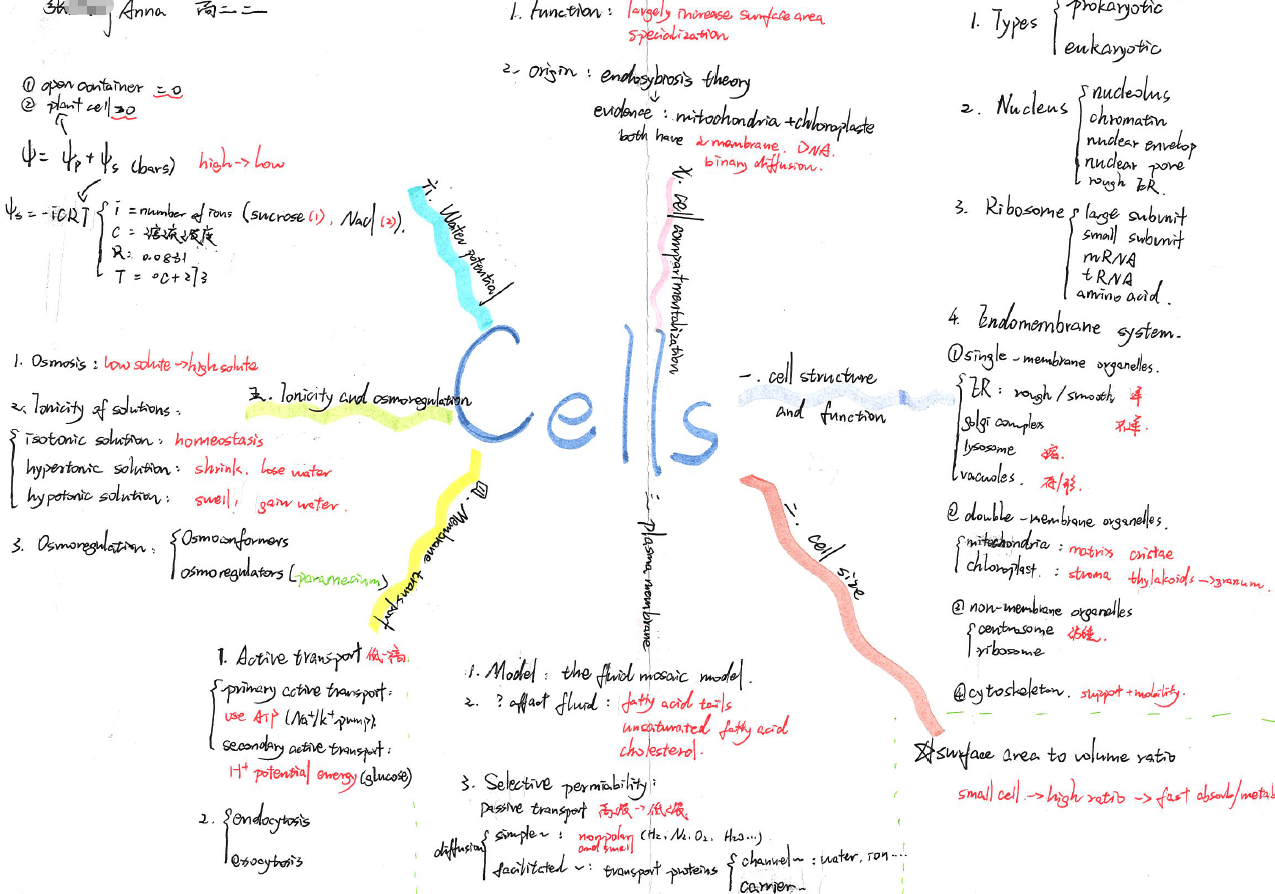 Anna 高二二
① open container = 0
② plant cell >0
ψ = ψp + ψs (bars) high → low
ψs = -iCRT
i = number of ions (sucrose (1), Nacl (2)).
C = 溶液浓度
R: 0.0831
T = °C + 273
六. Water potential
1. Function: largely increase surface area
specialization
2. origin: endosybrosis theory
evidence: mitochondria + chloroplaste
both have 2 membrane. DNA.
binary diffusion.
cell compartmentalization
Cells
1. Types
prokaryotic
eukaryotic
2. Nucleus
nucleolus
chromatin
nuclear envelop
nuclear pore
rough ER.
3. Ribosome
large subunit
small subunit
mRNA
tRNA
amino acid.
4. Endomembrane system.
① single-membrane organelles.
ER: rough/smooth
golgi complex
lysosome
vacuoles.
② double-membrane organelles.
mitochondria: matrix cristae
chloroplast.: stroma thylakoids → granum.
③ non-membrane organelles
centrosome
ribosome
④ cytoskeleton. support + mobility.
一. cell structure
and function
二. cell size
☆ surface area to volume ratio
small cell → high ratio → fast absorb/metab
三 plasma membrane
1. Model: the fluid mosaic model.
2. ? affact fluid: fatty acid tails
unsaturated fatty acid
cholesterol.
3. Selective permiability:
passive transport 高浓→低浓
diffusion
simple ~: nonpolar and small (H2, N2, O2, H2O...)
facilitated ~: transport proteins
channel ~: water, ion...
carrier ~
四. Membrane transport
1. Active transport 低→高
primary active transport:
use ATP (Na+/k+ pump).
secondary active transport:
H+ potential energy (glucose)
2.
endocytosis
exocytosis
五. Tonicity and osmoregulation
1. Osmosis: low solute → high solute
2. Tonicity of solutions:
isotonic solution: homeostasis
hypertonic solution: shrink. lose water
hypotonic solution: swell, gain water.
3. Osmoregulation:
Osmoconformers
osmoregulators (paramecium)